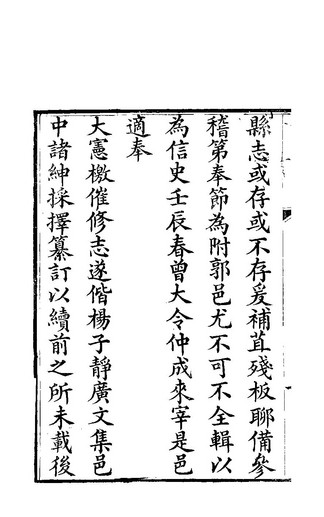 縣志或存或不存爰補苴殘板聊備參
稽第奉節為附郭邑尤不可不全輯以
為信史壬辰春曾大令仲成來宰是邑
適奉
大憲檄催修志遂偕楊子靜廣文集邑
中諸紳採擇纂訂以續前之所未載後